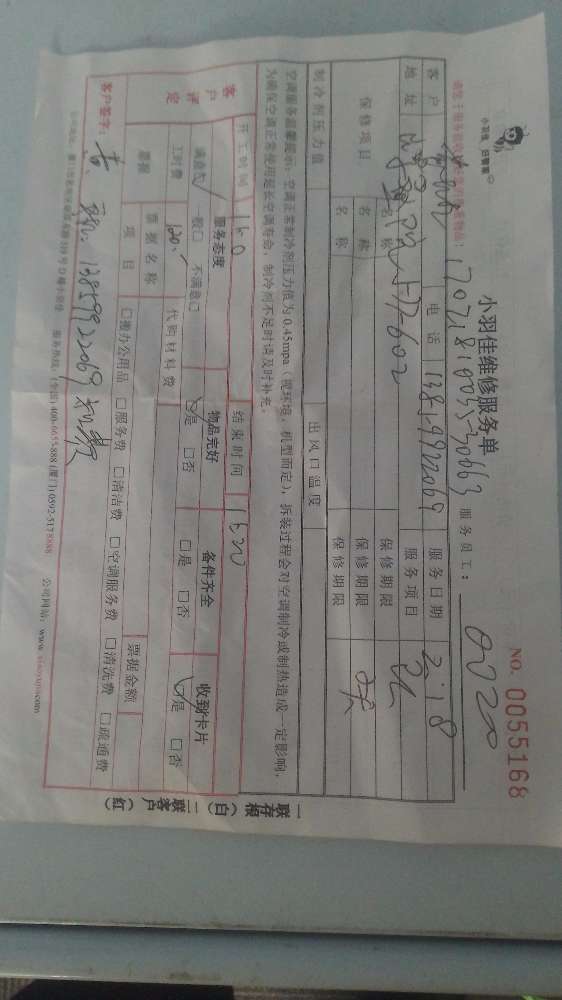 小羽佳 好管家
小羽佳维修服务单
NO. 0055168
服务员工： 0020
客户 电话 13859922069 服务日期 2.18
地址 577-602 服务项目
保修项目 名称 保修期限
名称 保修期限
名称 保修期限
制冷剂压力值 出风口温度
空调服务温馨提示：空调正常制冷剂压力值为 0.45mpa（视环境、机型而定），拆装过程会对空调制冷或制热造成一定影响，
为确保空调正常使用延长空调寿命，制冷剂不足时请及时补充。
开工时间 结束时间 1520
客户评定 服务态度 物品完好 备件齐全 收到卡片
满意 一般□ 不满意□ 是 □否 □是 □否 是 □否
工时费 120 代购材料费
票据 票据名称 票据金额
项目 □办公用品 □服务费 □清洁费 □空调服务费 □清洗费 □疏通费
客户签字： 13859922069
服务热线：(全国)400-6655-888 (厦门)0592-5178888 公司网站：www.xiaoyujia.com
一联存根（白） 二联客户（红）